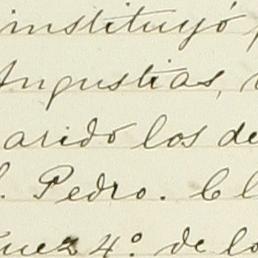 instituyó
Angustias,
arido los de
Pedro. C
uez 4º. de lo